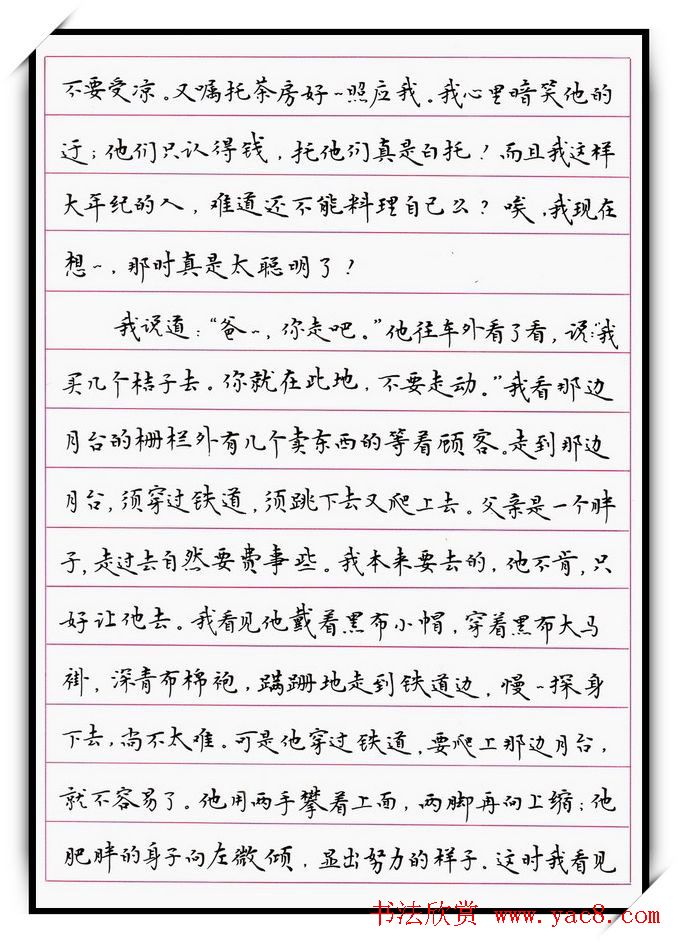 不要受凉。又嘱托茶房好~照应我。我心里暗笑他的
迂；他们只认得钱，托他们真是白托！而且我这样
大年纪的人，难道还不能料理自己么？唉，我现在
想~，那时真是太聪明了！
我说道：“爸~，你走吧。”他往车外看了看，说：“我
买几个桔子去。你就在此地，不要走动。”我看那边
月台的栅栏外有几个卖东西的等着顾客。走到那边
月台，须穿过铁道，须跳下去又爬上去。父亲是一个胖
子，走过去自然要费事些。我本来要去的，他不肯，只
好让他去。我看见他戴着黑布小帽，穿着黑布大马
褂，深青布棉袍，蹒跚地走到铁道边，慢~探身
下去，尚不太难。可是他穿过铁道，要爬上那边月台，
就不容易了。他用两手攀着上面，两脚再向上缩；他
肥胖的身子向左微倾，显出努力的样子。这时我看见
书法欣赏 www.yac8.com